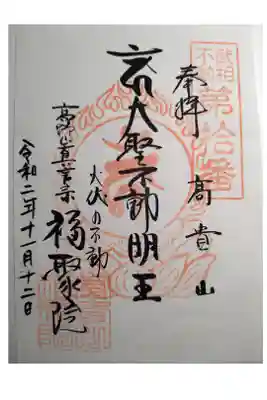 武相
不動
第拾番
奉拝
高貴山
大聖不動明王
火伏の不動
高野山真言宗 福聚院
令和二年十一月十二日